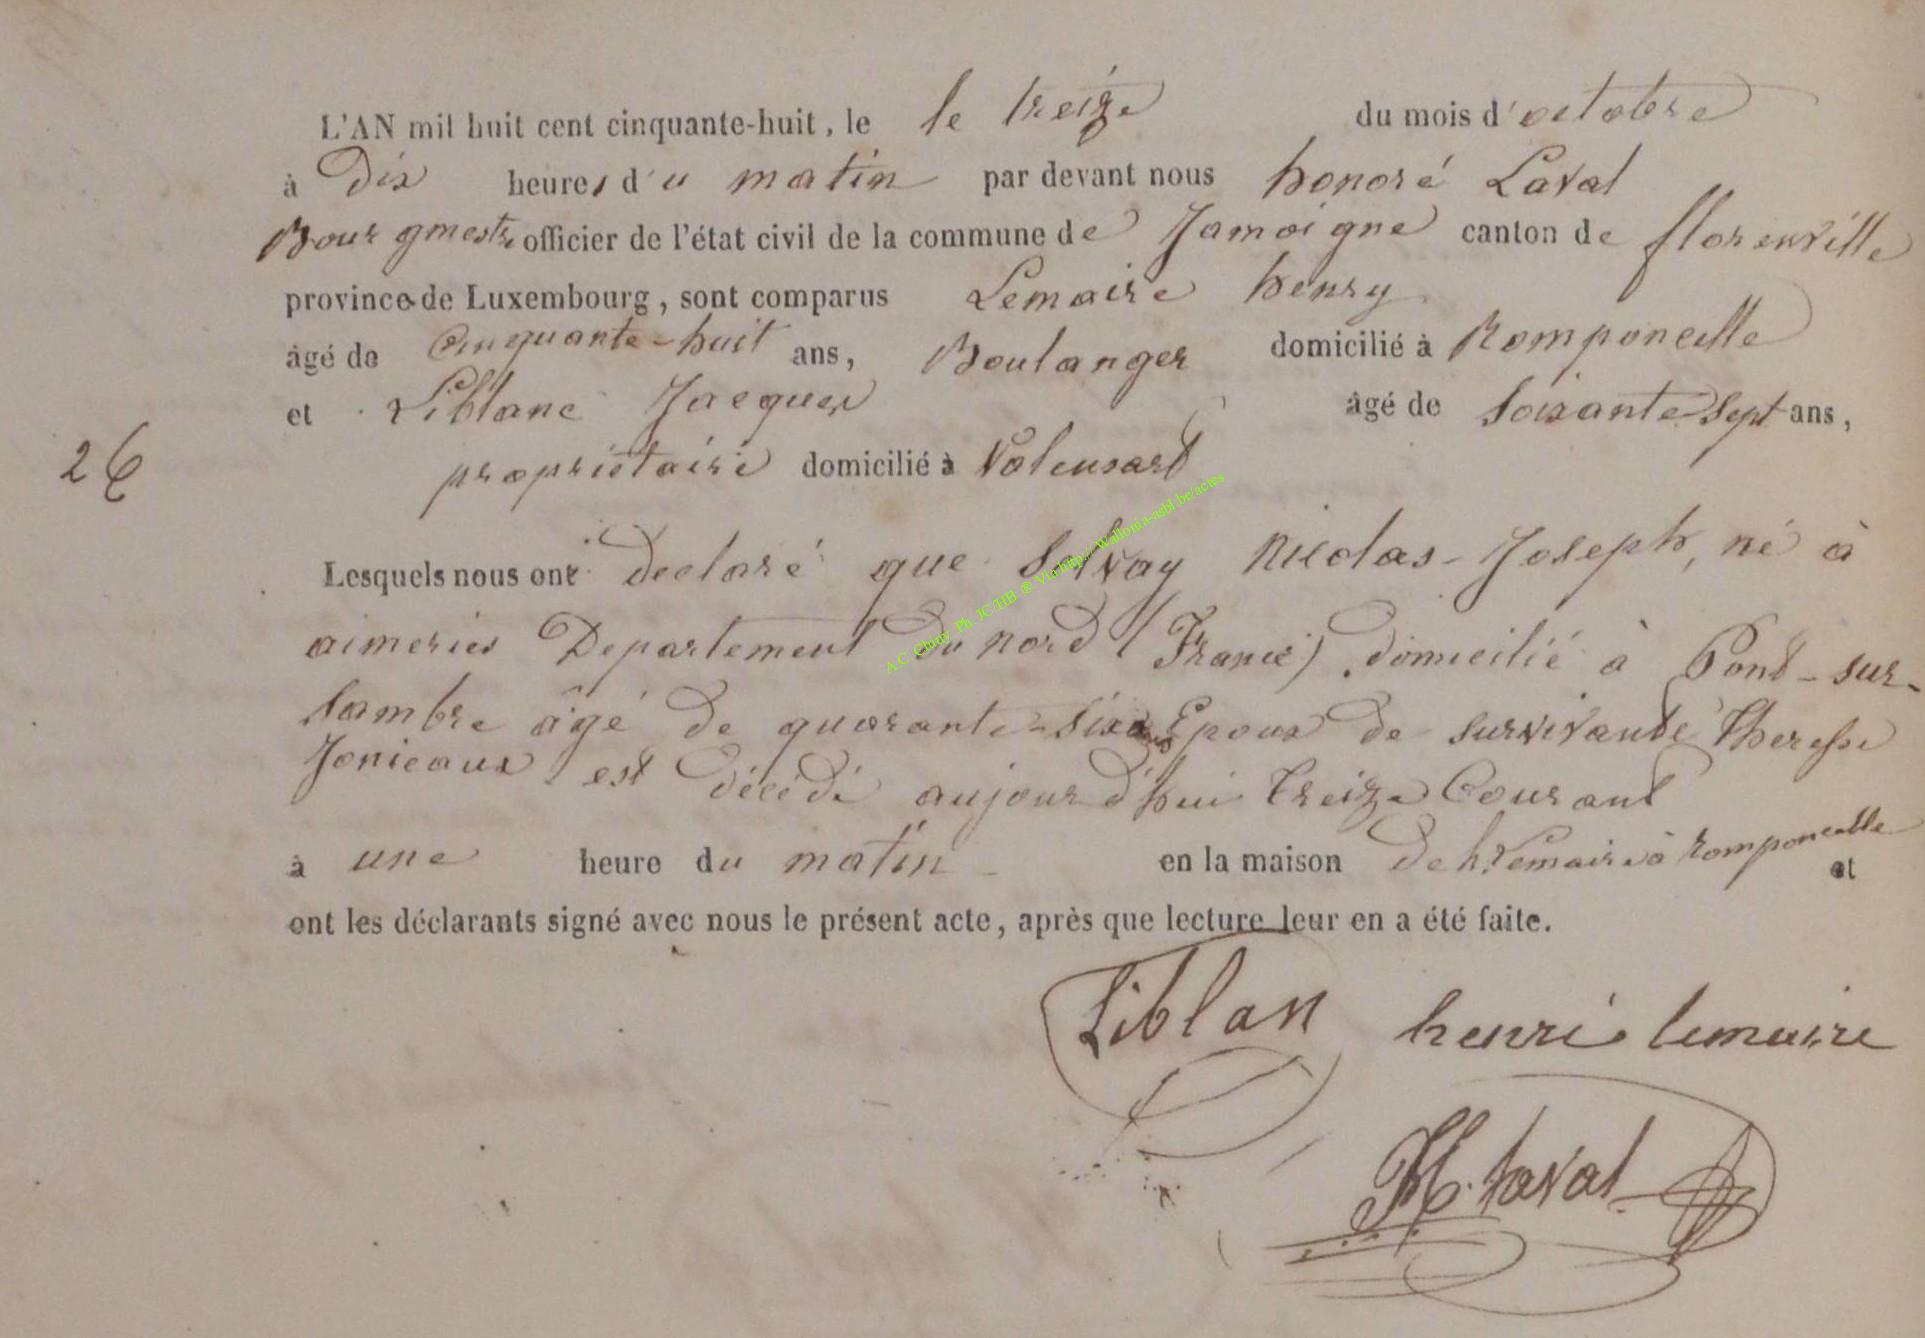 L'AN mil huit cent cinquante-huit, le le treize du mois d'octobre
à Dix heures d'u matin par devant nous honoré Laval
Bourgmestre officier de l'état civil de la commune de Jamoigne canton de florenville
province de Luxembourg, sont comparus Lemaire henry
âgé de Cinquante-huit ans, Boulanger domicilié à Romponcelle
et Liblanc Jacques âgé de soixante-sept ans,
26
propriétaire domicilié à Valensart
Lesquels nous ont déclaré que Solvay Nicolas-Joseph, né à
aimeries Departement du nord (France) domicilié à Pont-sur-
sambre âgé de quarante-six ans Epoux de survivante Theresse
Jonieaux est décédé aujourd'hui treize Courant
à une heure du matin en la maison De h. Lemaire à Romponcelle et
ont les déclarants signé avec nous le présent acte, après que lecture leur en a été faite.
Liblan henri lemaire
H. Laval
A.C. Chiny Ph. JC/HB @ Via http://Wallonia-asbl.be/actes